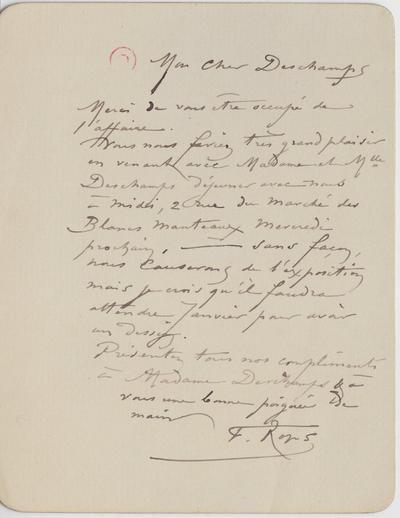 Mon cher Deschamps
Merci de vous être occupé de
l'affaire.
Vous nous feriez très grand plaisir
en venant avec Madame et Mlle
Deschamps déjeuner avec nous
à midi, 2 rue du marché des
Blancs Manteaux Mercredi
prochain, — sans façon,
nous causerons de l'exposition
mais je crois qu'il faudra
attendre Janvier pour avoir
un dessin.
Présentez tous nos compliments
à Madame Deschamps & à
vous une bonne poignée de
main
F. Rops